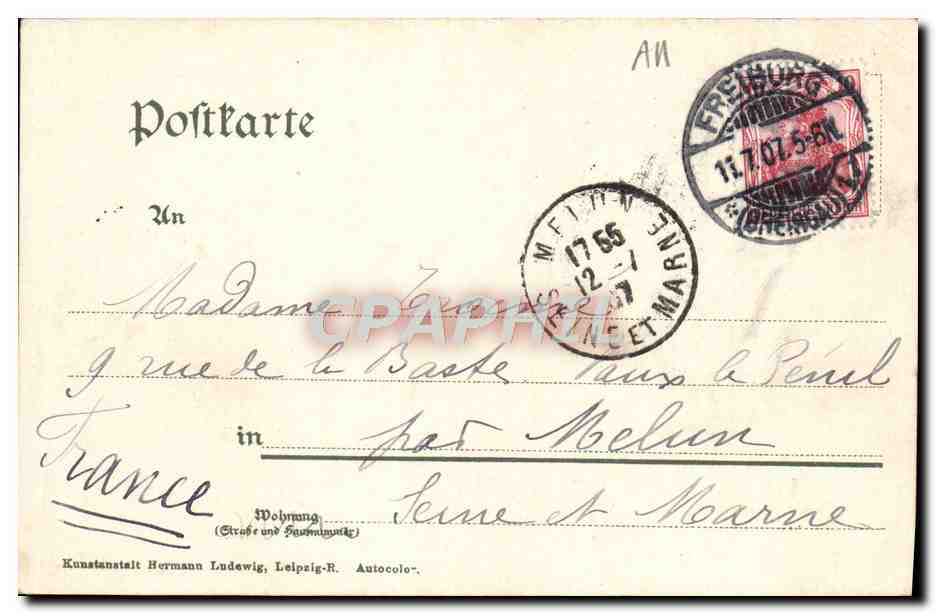 An
Postkarte
FREIBURG
11.7.07.5-6N.
* (BREISGAU) 1.
An
MELUN
17 55
12 - 7
07
SEINE ET MARNE
Madame
CPAPHIL
9 rue de la Vaux le Pénil
in par Melun
France
Wohnung Seine et Marne
(Straße und Hausnummer)
Kunstanstalt Hermann Ludewig, Leipzig-R. Autocolor.